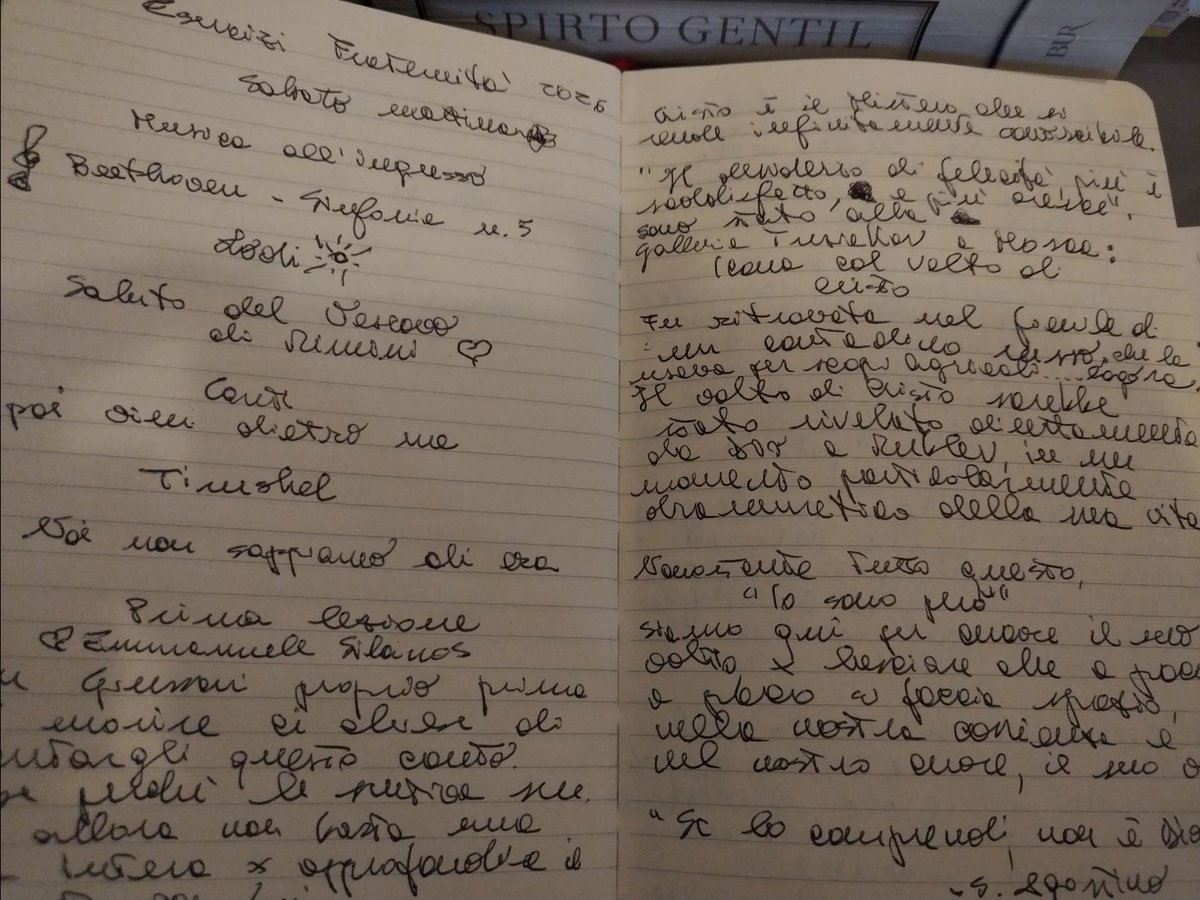 SPIRTO GENTIL
BUR
Esercizi Fraternità 2026
Sabato mattina
Musica all'ingresso
Beethoven - Sinfonia n. 5
Lodi
Saluto del Vescovo
di Rimini
Canti
poi vieni dietro me
Timshel
Noi non sappiamo chi era
Prima lezione
Emmanuele Silanos
Giussani proprio prima
morire ci chiese di
questo canto.
allora non basta una
intera x approfondire il
Cristo è il Mistero che si
rende infinitamente conoscibile.
"Il desiderio di felicità, più è
soddisfatto, e più cresce".
sono stato alla
galleria a Mosca:
icona col volto di
Cristo
Fu ritrovata nel fienile di
un contadino russo, che la
usava per scopi agricoli....
Il volto di Cristo sarebbe
stato rivelato direttamente
da Dio a Rublev, in un
momento particolarmente
drammatico della sua vita
Nonostante tutto questo,
"Io sono
Siamo qui per il suo
volto x lasciare che a poco
a poco si faccia spazio,
nella nostra coscienza e
nel nostro cuore, il suo
"Se lo comprendi, non è Dio
S. Agostino